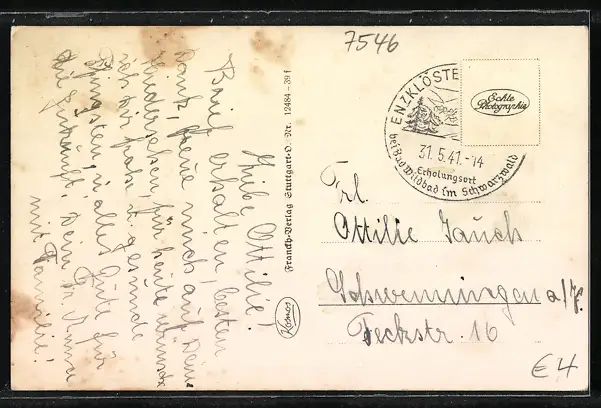 7546
ENZKLÖSTE
31.5.41.-14
Erholungsort
bei Bad Wildbad im Schwarzwald
Echte
Photographie
Liebe Ottilie!
Brief erhalten, besten
Dank, freue mich auf Dein
Wiedersehen, für heute wünsche
ich Dir frohe u. gesunde
Pfingsten, u. alles Gute für
die Zukunft, Dein
mit Familie!
Franckh-Verlag Stuttgart-O. - Nr. 12484-39f
Kosmos
Frl.
Ottilie Jauch
Schwenningen a/N.
Teckstr. 16
E4